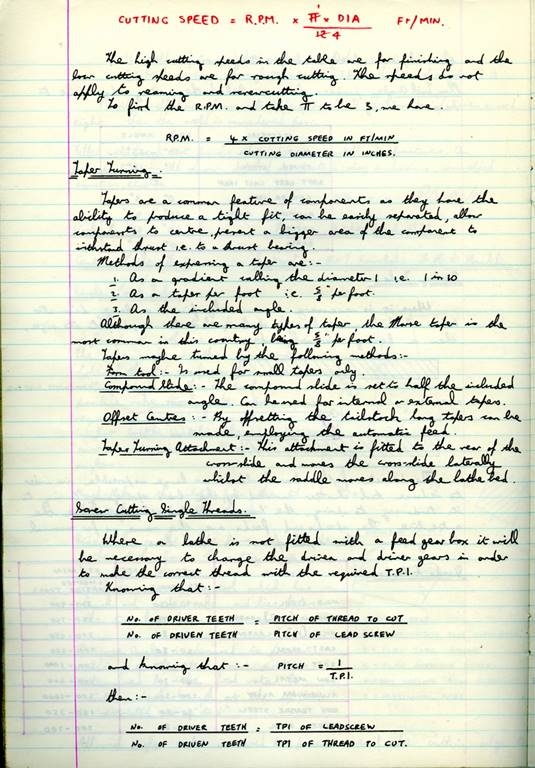 CUTTING SPEED = R.P.M. × π × DIA / 12 4 FT/MIN.
The high cutting speeds in the table are for finishing and the
low cutting speeds are for rough cutting. The speeds do not
apply to reaming and screwcutting.
To find the R.P.M. and take π to be 3, we have.
R.P.M. = 4 × CUTTING SPEED IN FT/MIN / CUTTING DIAMETER IN INCHES.
Taper Turning.
Tapers are a common feature of components as they have the
ability to produce a tight fit, can be easily separated, allow
components to centre, permit a bigger area of the component to
withstand thrust i.e. to a thrust bearing.
Methods of expressing a taper are:-
1. As a gradient calling the diameter 1 i.e. 1 in 20
2. As a taper per foot i.e. 5/8" per foot.
3. As the included angle.
Although there are many types of taper, the Morse taper is the
most common in this country, being 5/8" per foot.
Tapers maybe turned by the following methods:-
Form tool:- Is used for small tapers only.
Compound Slide:- The compound slide is set to half the included
angle. Can be used for internal or external tapers.
Offset Centres:- By offsetting the tailstock long tapers can be
made, employing the automatic feed.
Taper Turning Attachment:- This attachment is fitted to the rear of the
cross-slide and moves the cross-slide laterally
whilst the saddle moves along the lathe bed.
Screw Cutting Single Threads.
Where a lathe is not fitted with a feed gear box it will
be necessary to change the driven and driver gears in order
to make the correct thread with the required T.P.I.
Knowing that:-
No. OF DRIVER TEETH / No. OF DRIVEN TEETH = PITCH OF THREAD TO CUT / PITCH OF LEAD SCREW
and knowing that:- PITCH = 1 / T.P.I.
then:-
No. OF DRIVER TEETH / No. OF DRIVEN TEETH = TPI OF LEADSCREW / TPI OF THREAD TO CUT.